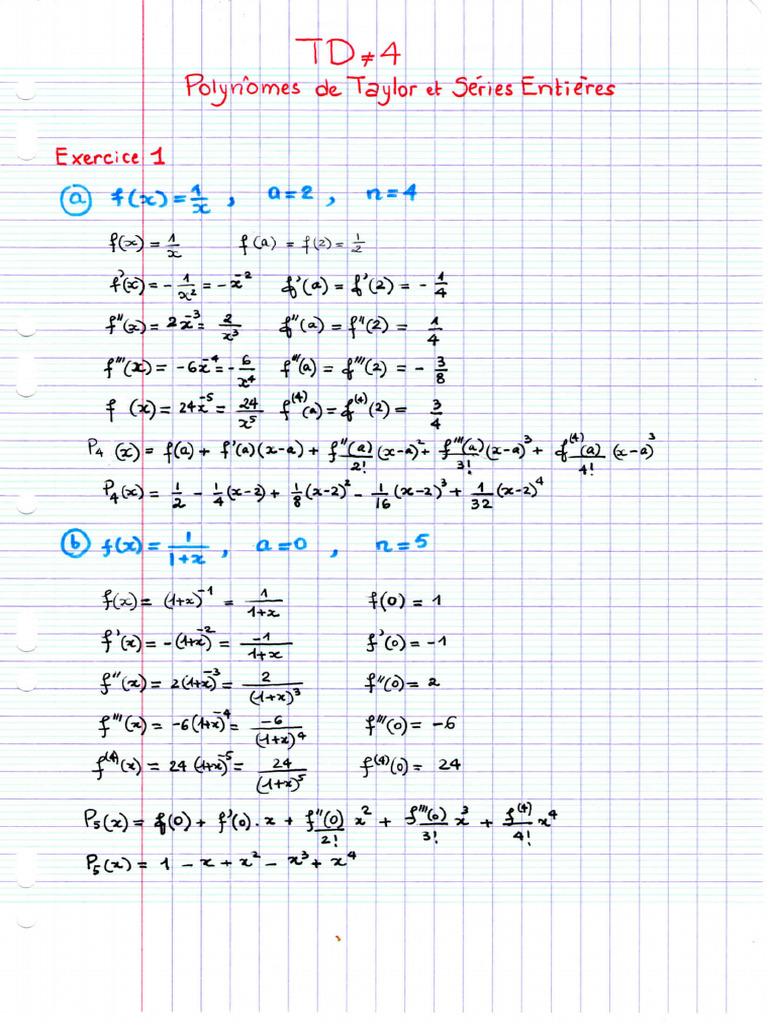 TD≠4
Polynômes de Taylor et Séries Entières
Exercice 1
(a) f(x) = 1/x , a=2 , n=4
f(x) = 1/x f(a) = f(2) = 1/2
f'(x) = -1/x² = -x⁻² f'(a) = f'(2) = -1/4
f''(x) = 2x⁻³ = 2/x³ f''(a) = f''(2) = 1/4
f'''(x) = -6x⁻⁴ = -6/x⁴ f'''(a) = f'''(2) = -3/8
f (x) = 24x⁻⁵ = 24/x⁵ f⁽⁴⁾(a) = f⁽⁴⁾(2) = 3/4
P₄(x) = f(a) + f'(a)(x-a) + f''(a)/2! (x-a)² + f'''(a)/3! (x-a)³ + f⁽⁴⁾(a)/4! (x-a)³
P₄(x) = 1/2 - 1/4(x-2) + 1/8(x-2)² - 1/16(x-2)³ + 1/32(x-2)⁴
(b) f(x) = 1/(1+x) , a=0 , n=5
f(x) = (1+x)⁻¹ = 1/(1+x) f(0) = 1
f'(x) = -(1+x)⁻² = -1/(1+x) f'(0) = -1
f''(x) = 2(1+x)⁻³ = 2/(1+x)³ f''(0) = 2
f'''(x) = -6(1+x)⁻⁴ = -6/(1+x)⁴ f'''(0) = -6
f⁽⁴⁾(x) = 24(1+x)⁻⁵ = 24/(1+x)⁵ f⁽⁴⁾(0) = 24
P₅(x) = f(0) + f'(0).x + f''(0)/2! x² + f'''(0)/3! x³ + f⁽⁴⁾/4! x⁴
P₅(x) = 1 - x + x² - x³ + x⁴